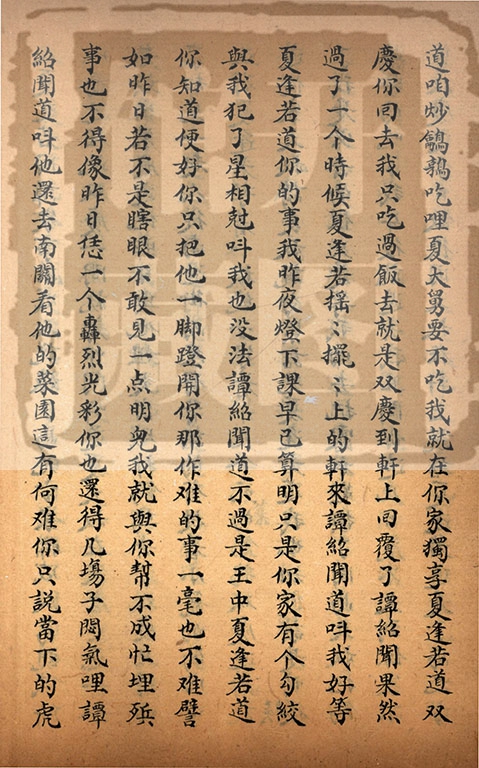 道咱炒鵪鶉吃哩夏大舅要不吃我就在你家獨享夏逢若道双
慶你囘去我只吃過飯去就是双慶到軒上囘覆了譚紹聞果然
過了一个時候夏逢若搖〻擺〻上的軒來譚紹聞道呌我好等
夏逢若道你的事我昨夜燈下課早已算明只是你家有个勾絞
與我犯了星相尅呌我也没法譚紹聞道不過是王中夏逢若道
你知道便好你只把他一脚蹬開你那作难的事一毫也不难譬
如昨日若不是瞎眼不敢見一点明皃我就與你幫不成忙埋殡
事也不得像昨日恁一个轟烈光彩你也還得几塲子悶氣哩譚
紹聞道呌他還去南關看他的菜園這有何难你只説當下的虎